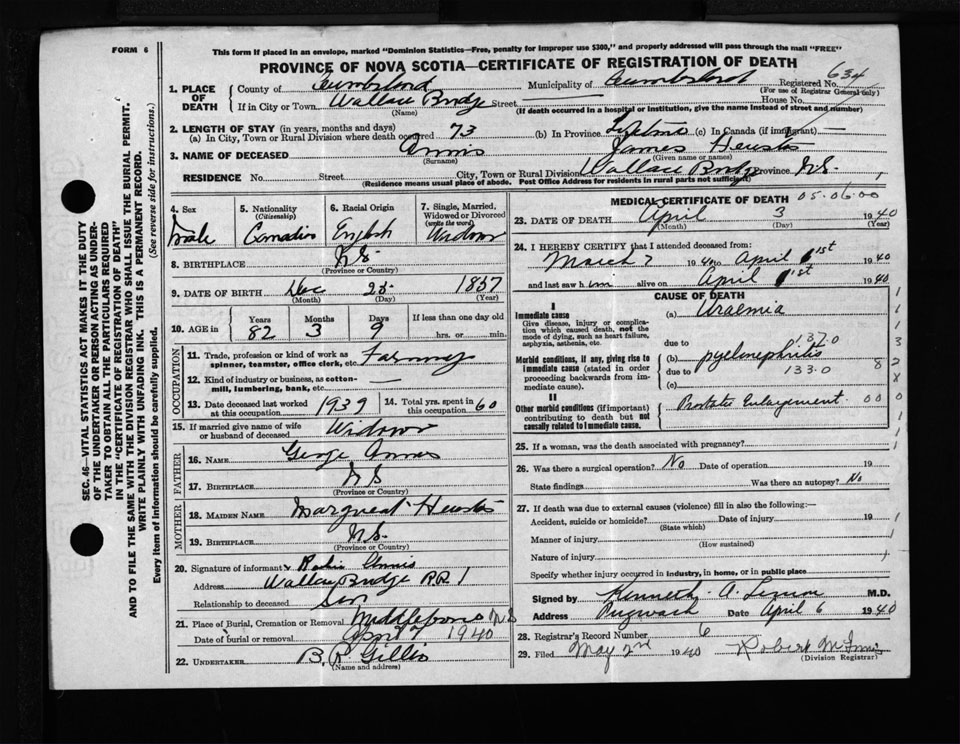 FORM 6
This form if placed in an envelope, marked "Dominion Statistics—Free, penalty for improper use $300," and properly addressed will pass through the mail "FREE"
PROVINCE OF NOVA SCOTIA—CERTIFICATE OF REGISTRATION OF DEATH
SEC. 46—VITAL STATISTICS ACT MAKES IT THE DUTY
OF THE UNDERTAKER OR PERSON ACTING AS UNDER-
TAKER TO OBTAIN ALL THE PARTICULARS REQUIRED
IN THE "CERTIFICATE OF REGISTRATION OF DEATH"
AND TO FILE THE SAME WITH THE DIVISION REGISTRAR WHO SHALL ISSUE THE BURIAL PERMIT.
WRITE PLAINLY WITH UNFADING INK. THIS IS A PERMANENT RECORD.
Every item of information should be carefully supplied. (See reverse side for instructions.)
1. PLACE OF DEATH
County of Cumberland Municipality of Cumberland Registered No. 634
(For use of Registrar General only)
If in City or Town Wallace Bridge Street House No.
(Name) (If death occurred in a hospital or institution, give the name instead of street and number)
2. LENGTH OF STAY (in years, months and days)
(a) In City, Town or Rural Division where death occurred 73 (b) In Province Lifetime (c) In Canada (if immigrant) —
3. NAME OF DECEASED Annis James Heustis
(Surname) (Given name or names)
RESIDENCE No. Street City, Town or Rural Division Wallace Bridge Province N.S.
(Residence means usual place of abode. Post Office Address for residents in rural parts not sufficient)
4. Sex Male
5. Nationality (Citizenship) Canadian
6. Racial Origin English
7. Single, Married, Widowed or Divorced (write the word) Widower
8. BIRTHPLACE N.S.
(Province or Country)
9. DATE OF BIRTH Dec 25 1857
(Month) (Day) (Year)
10. AGE in Years 82 Months 3 Days 9 If less than one day old hrs. or min.
OCCUPATION
11. Trade, profession or kind of work as spinner, teamster, office clerk, etc. Farming
12. Kind of industry or business, as cotton-mill, lumbering, bank, etc. —
13. Date deceased last worked at this occupation 1939 14. Total yrs. spent in this occupation 60
15. If married give name of wife or husband of deceased Widower
FATHER
16. NAME George Annis
17. BIRTHPLACE N S
(Province or Country)
MOTHER
18. MAIDEN NAME Margreat Heustis
19. BIRTHPLACE N.S.
(Province or Country)
20. Signature of informant Annis
Address Wallace Bridge RR 1
Relationship to deceased Son
21. Place of Burial, Cremation or Removal Middleboro N S
Date of burial or removal April 7 1940
22. UNDERTAKER B. R Gillis
(Name and address)
MEDICAL CERTIFICATE OF DEATH 05.06.00
23. DATE OF DEATH April 3 1940
(Month) (Day) (Year)
24. I HEREBY CERTIFY that I attended deceased from:
March 7 1940 to April 1st 1940
and last saw him alive on April 1st 1940
CAUSE OF DEATH
I
Immediate cause
Give disease, injury or complication which caused death, not the mode of dying, such as heart failure, asphyxia, asthenia, etc.
(a) Uraemia
due to 137.0
Morbid conditions, if any, giving rise to immediate cause (stated in order proceeding backwards from immediate cause).
(b) pyelonephritis
due to 133.0
(c)
II
Other morbid conditions (if important) contributing to death but not causally related to immediate cause.
Prostate Enlargement
25. If a woman, was the death associated with pregnancy?
26. Was there a surgical operation? No Date of operation 19
State findings Was there an autopsy? No
27. If death was due to external causes (violence) fill in also the following:—
Accident, suicide or homicide? Date of injury 19
(State which)
Manner of injury
(How sustained)
Nature of injury
Specify whether injury occurred in industry, in home, or in public place
Signed by Kenneth A. M.D.
Address Pugwash Date April 6 1940
28. Registrar's Record Number 6
29. Filed May 2nd 1940 Robert McInnis
(Division Registrar)